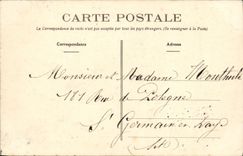 CARTE POSTALE
La Correspondance au recto n'est pas acceptée par tous les pays étrangers. (Se renseigner à la Poste)
Correspondance
Adresse
Monsieur et Madame
181 Rue de Pologne
St Germain en Laye